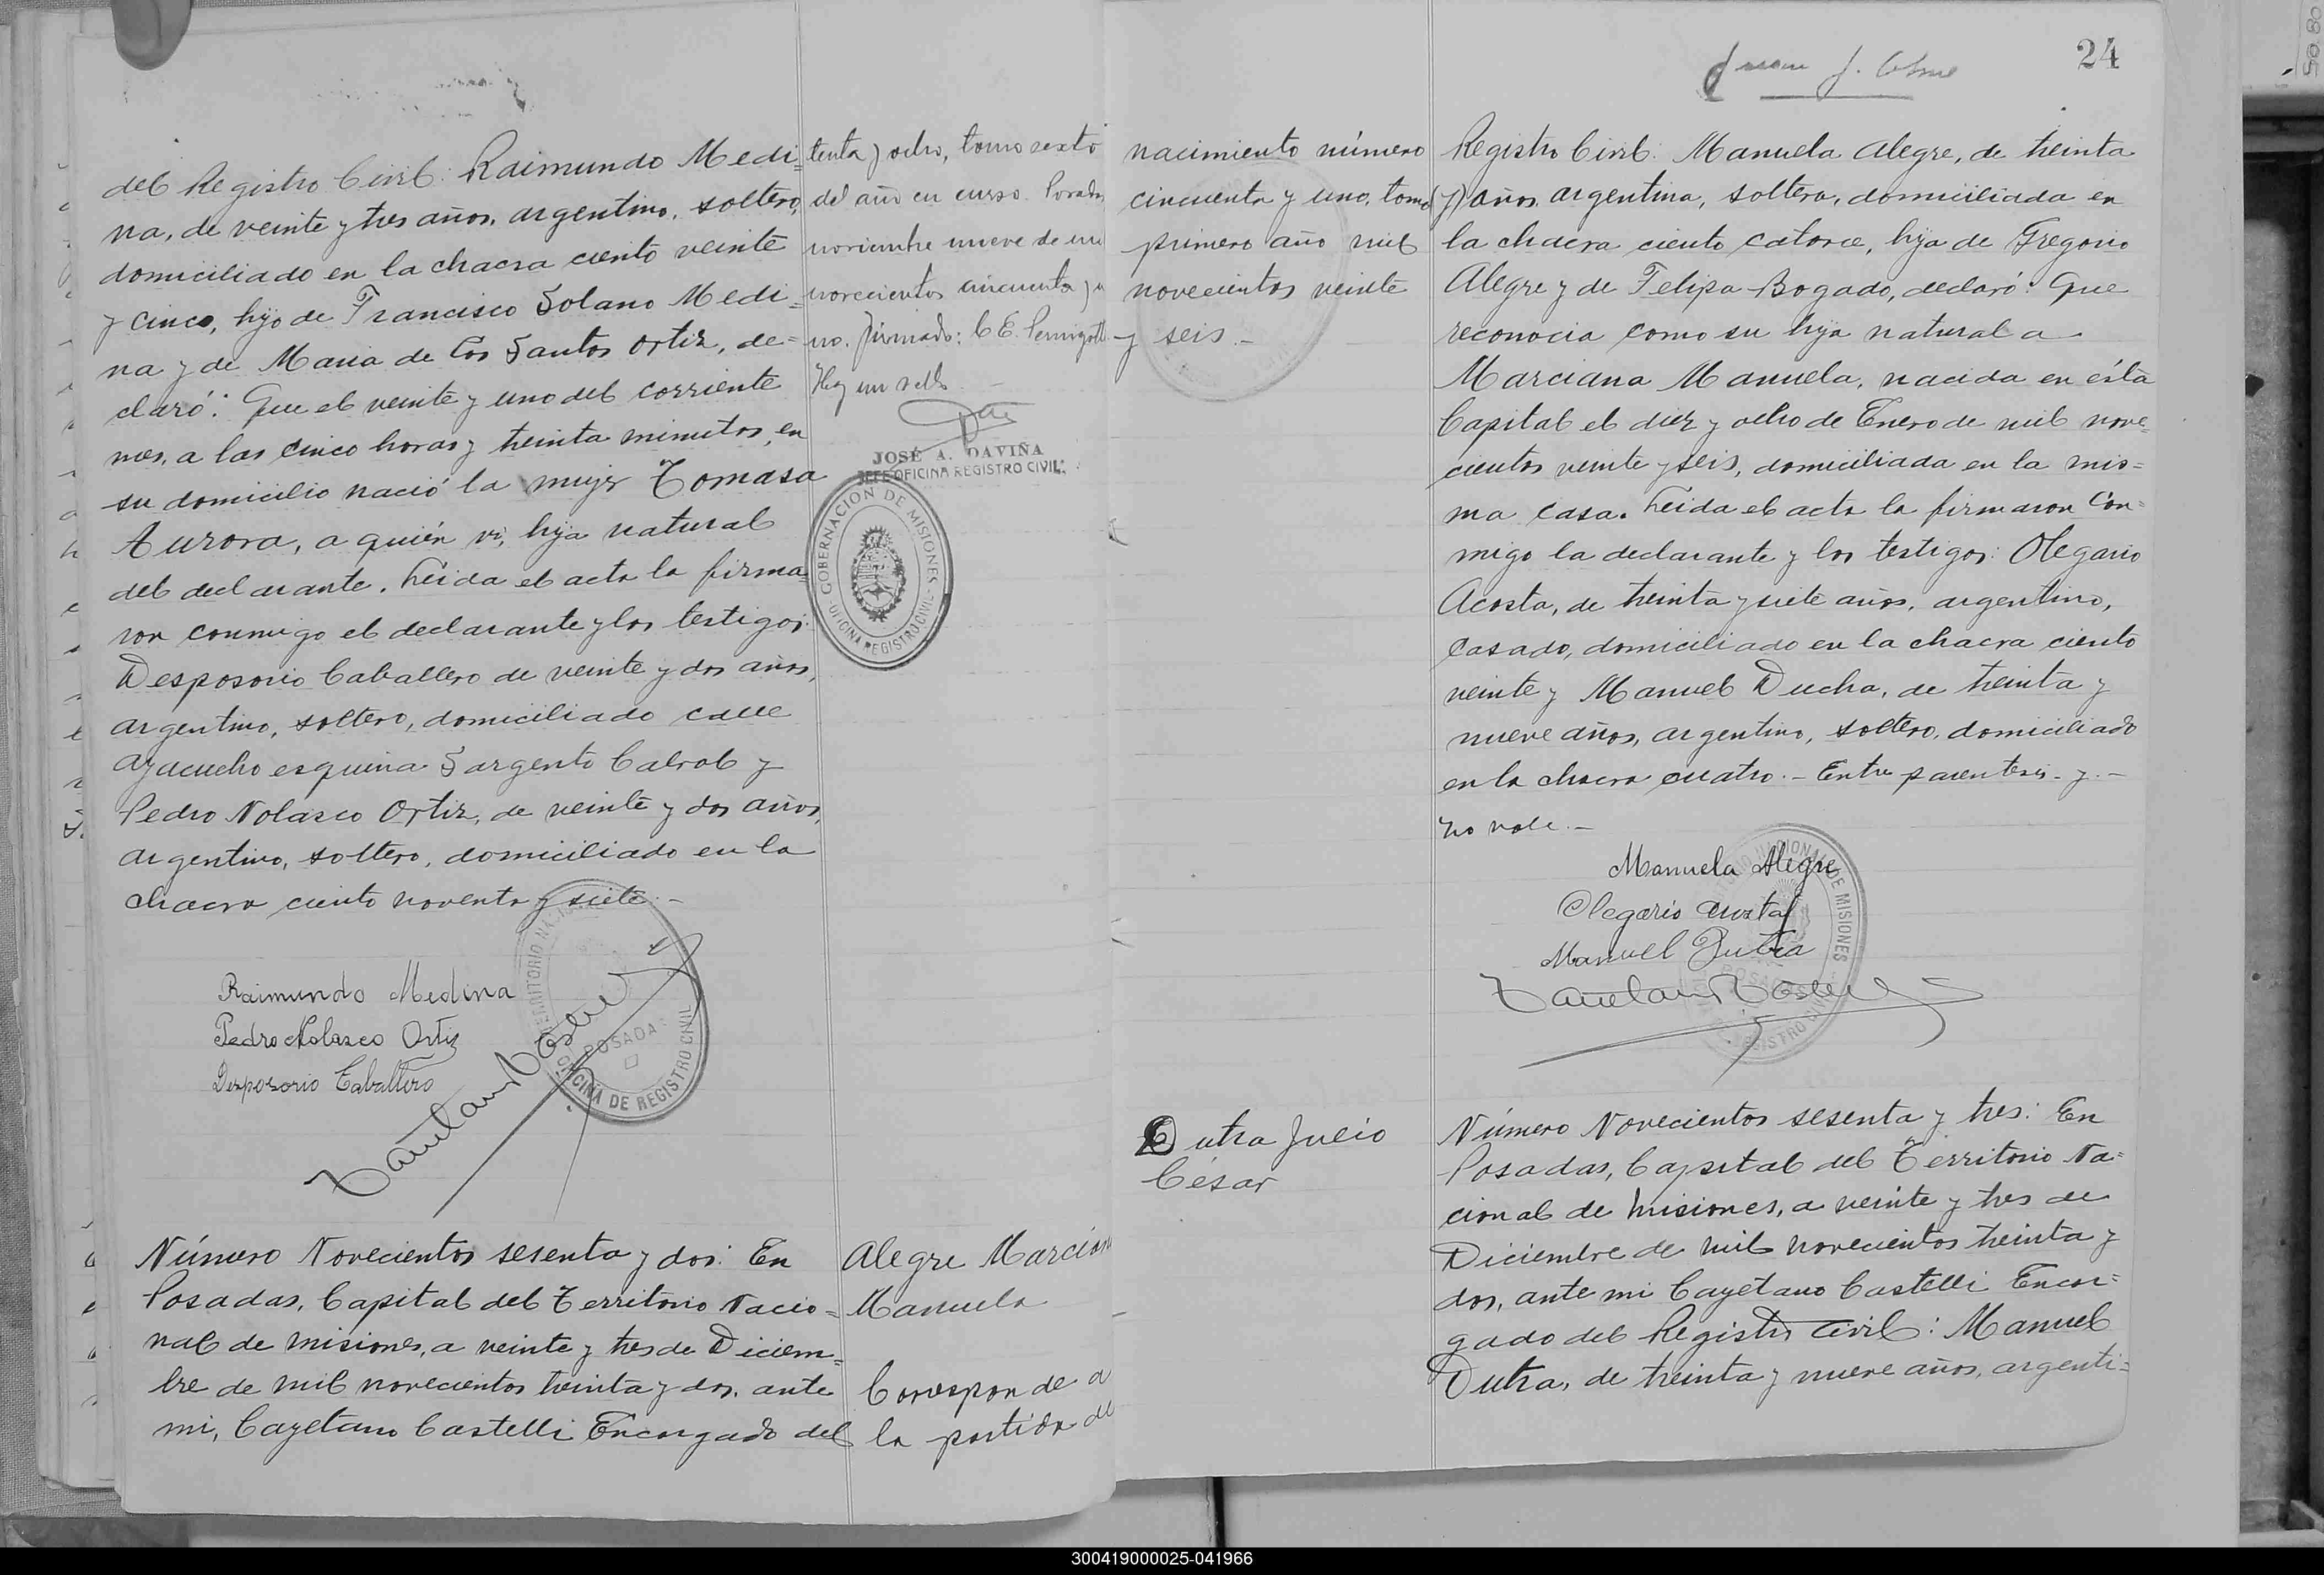 del Registro Civil: Raimundo Medi=
na, de veinte y tres años, argentino, soltero,
domiciliado en la chacra ciento veinte
y cinco, hijo de Francisco Solano Medi=
na y de Maria de los Santos Ortiz, de=
claró: Que el veinte y uno del corriente
mes, a las cinco horas y treinta minutos, en
su domicilio nació la mujer Tomasa
Aurora, a quién vi, hija natural
del declarante. Leida el acta la firma=
ron conmigo el declarante y los testigos:
Desposorio Caballero de veinte y dos años,
argentino, soltero, domiciliado calle
Ayacucho esquina Sargento Cabral y
Pedro Nolasco Ortiz, de veinte y dos años,
argentino, soltero, domiciliado en la
chacra ciento noventa y siete.-
Raimundo Medina
Pedro Nolasco Ortiz
Desposorio Caballero
TERRITORIO
POSADAS
OFICINA DE REGISTRO CIVIL
Número Novecientos sesenta y dos: En
Posadas, Capital del Territorio Nacio=
nal de Misiones, a veinte y tres de Diciem=
bre de mil novecientos treinta y dos, ante
mi, Cayetano Castelli Encargado del
tenta y ocho, tomo sexto
del año en curso. Posadas
noviembre nueve de mil
novecientos cincuenta y u
no. Firmado: C. E.
Hay un sello
JOSÉ A. DAVIÑA
JEFE OFICINA REGISTRO CIVIL
GOBERNACION DE MISIONES
OFICINA REGISTRO CIVIL
Alegre Marciana
Manuela
Corresponde a
la partida de
24
nacimiento número
cincuenta y uno, tomo
primero año mil
novecientos veinte
y seis.-
Registro Civil: Manuela Alegre, de treinta
(y) años, argentina, soltera, domiciliada en
la chacra ciento catorce, hija de Gregorio
Alegre y de Felipa Bogado, declaró: Que
reconocia como su hija natural a
Marciana Manuela, nacida en ésta
Capital el diez y ocho de Enero de mil nove=
cientos veinte y seis, domiciliada en la mis=
ma casa. Leida el acta la firmaron con=
migo la declarante y los testigos: Olegario
Acosta, de treinta y siete años, argentino,
casado, domiciliado en la chacra ciento
veinte y Manuel Dutra, de treinta y
nueve años, argentino, soltero, domiciliado
en la chacra cuatro.- Entre parentesis- y.-
no vale.-
Manuela Alegre
Olegario Acosta
Manuel Dutra
DE MISIONES
POSADAS
REGISTRO CIVIL
Dutra Julio
César
Número Novecientos sesenta y tres: En
Posadas, Capital del Territorio Na=
cional de Misiones, a veinte y tres de
Diciembre de mil novecientos treinta y
dos, ante mi Cayetano Castelli Encar=
gado del Registro Civil: Manuel
Dutra, de treinta y nueve años, argenti=
300419000025-041966